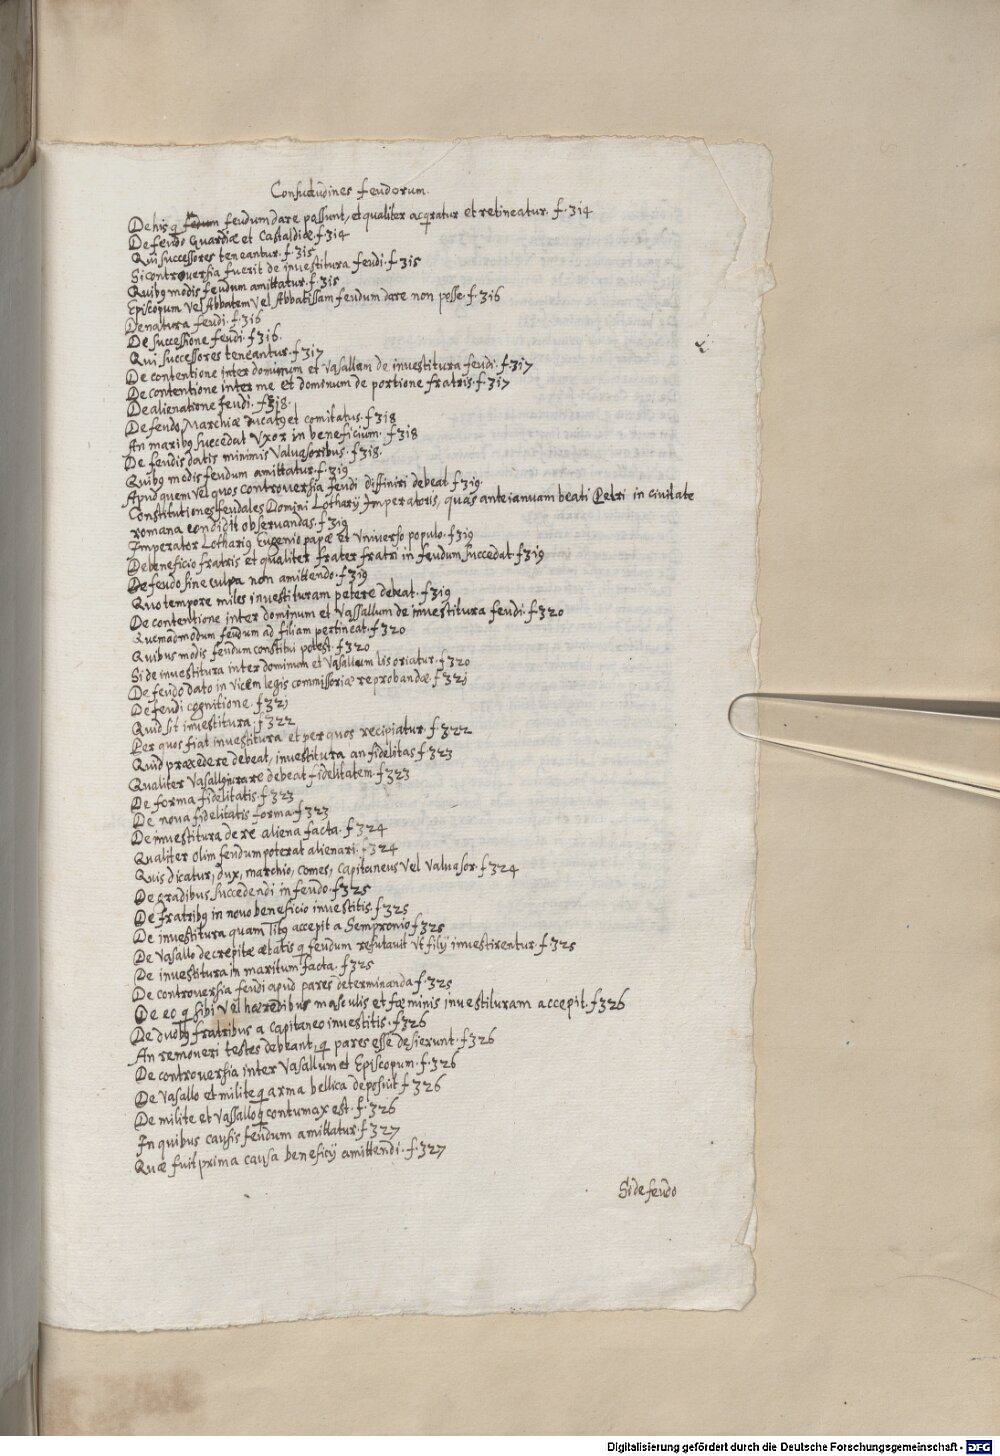 Consuetudines feudorum.
De his q feudum dare possunt, et qualiter acqratur et retineatur. f. 314
De feudo Guardiæ et Castaldiæ. f. 314
Qui successores teneantur. f. 315
Si controversia fuerit de investitura feudi. f. 315
Quibq modis feudum amittatur. f. 315
Episcopum vel Abbatem vel Abbatissam feudum dare non posse. f. 316
De natura feudi. f. 316
De successione feudi. f. 316.
Qui successores teneantur. f. 317
De contentione inter dominum et vasallum de investitura feudi. f. 317
De contentione inter me et dominum de portione fratris. f. 317
De alienatione feudi. f. 318.
De feudo, Marchiæ ducatq et comitatus. f. 318
An maribq succedat Vxor in beneficium. f. 318
De feudis datis minimis Valuasoribus. f. 318.
Quibq modis feudum amittatur. f. 319
Apud quem vel quos controversia feudi diffiniri debeat f. 319.
Constitutiones feudales Domini Lotharij Imperatoris, quas ante ianuam beati Petri in civitate
romana condidit observandas. f. 319
Imperator Lothariq Eugenio papæ et Universo populo. f. 319
De beneficio fratris et qualiter frater fratri in feudum succedat f 319
De feudo sine culpa non amittendo. f. 319
Quo tempore miles investituram petere debeat. f. 319
De contentione inter dominum et Vassallum de investitura feudi. f. 320
Quemadmodum feudum ad filiam pertineat. f. 320
Quibus modis feudum constitui potest. f. 320
Si de investitura inter dominum et Vasallum lis oriatur. f. 320
De feudo dato in vicem legis commissoriæ reprobandæ. f. 321
De feudi cognitione. f. 321
Quid sit investitura. f. 322
Per quos fiat investitura et per quos recipiatur. f. 322
Quid præcedere debeat, investitura an fidelitas f 323
Qualiter Vasallq iurare debeat fidelitatem. f 323
De forma fidelitatis. f 323
De nova fidelitatis forma. f 323
De investitura de re aliena facta. f 324
Qualiter olim feudum poterat alienari. f 324
Quis dicatur, dux, marchio, comes, Capitaneus vel valuasor. f 324
De gradibus succedendi in feudo. f 325
De fratribq in novo beneficio investitis. f 325
De investitura quam Titq accepit a Sempronio f 325
De Vasallo decrepitæ ætatis q feudum refutauit vt filij investirentur. f 325
De investitura in maritum facta. f 325
De controversia feudi apud pares determinanda f. 325
De eo q sibi vel hæredibus masculis et fæminis investituram accepit. f 326
De duobq fratribus a capitaneo investitis. f 326
An removeri testes debeant, q pares esse desierunt. f 326
De controversia inter Vasallum et Episcopum. f. 326
De Vasallo et milite q arma bellica deposuit f 326
De milite et Vassallo q contumax est. f. 326
In quibus causis feudum amittatur. f 327
Quæ fuit prima causa beneficij amittendi. f. 327
Si de feudo
Digitalisierung gefördert durch die Deutsche Forschungsgemeinschaft - DFG